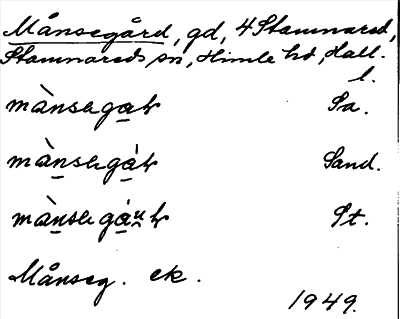 Månsegård, gd, 4 Stamnared,
Stamnareds sn, Himle hd, Hall.
l.
mànsegat Sa.
mànsegàt Sand.
mànsegàut St.
Månseg. ek.
1949.